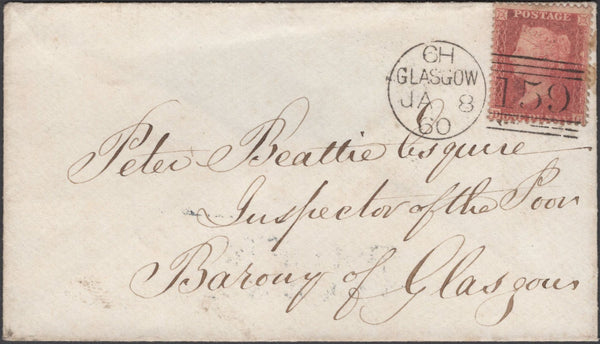 POSTAGE
6H
GLASGOW
JA 8
60
159
Peter Beattie Esquire
Inspector of the Poor
Barony of Glasgow